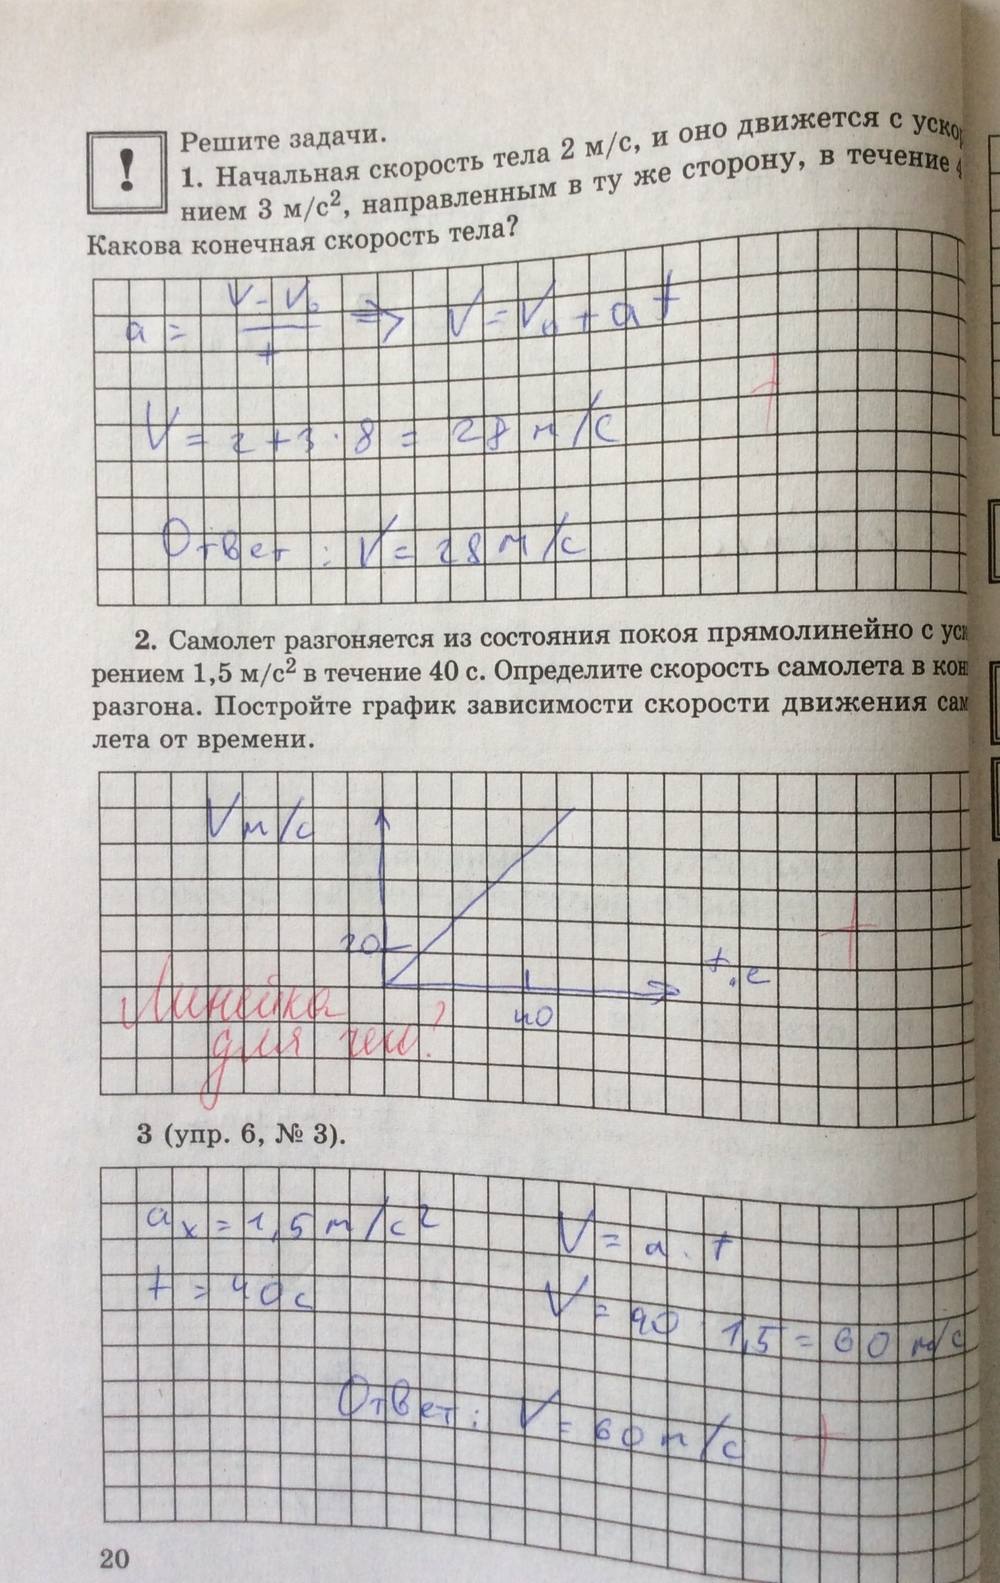 !
Решите задачи.
1. Начальная скорость тела 2 м/с, и оно движется с уско
нием 3 м/с², направленным в ту же сторону, в течение
Какова конечная скорость тела?
a = (V - V₀)/t => V = V₀ + at
+
V = 2 + 3 · 8 = 28 м/с
Ответ : V = 28 м/с
2. Самолет разгоняется из состояния покоя прямолинейно с уск
рением 1,5 м/с² в течение 40 с. Определите скорость самолета в кон
разгона. Постройте график зависимости скорости движения сам
лета от времени.
V м/с
+
20
t, с
40
Линейка
для чего?
3 (упр. 6, № 3).
aₓ = 1,5 м/с² V = a · t
t = 40 с V = 40 · 1,5 = 60 м/с
Ответ : V = 60 м/с
+
20